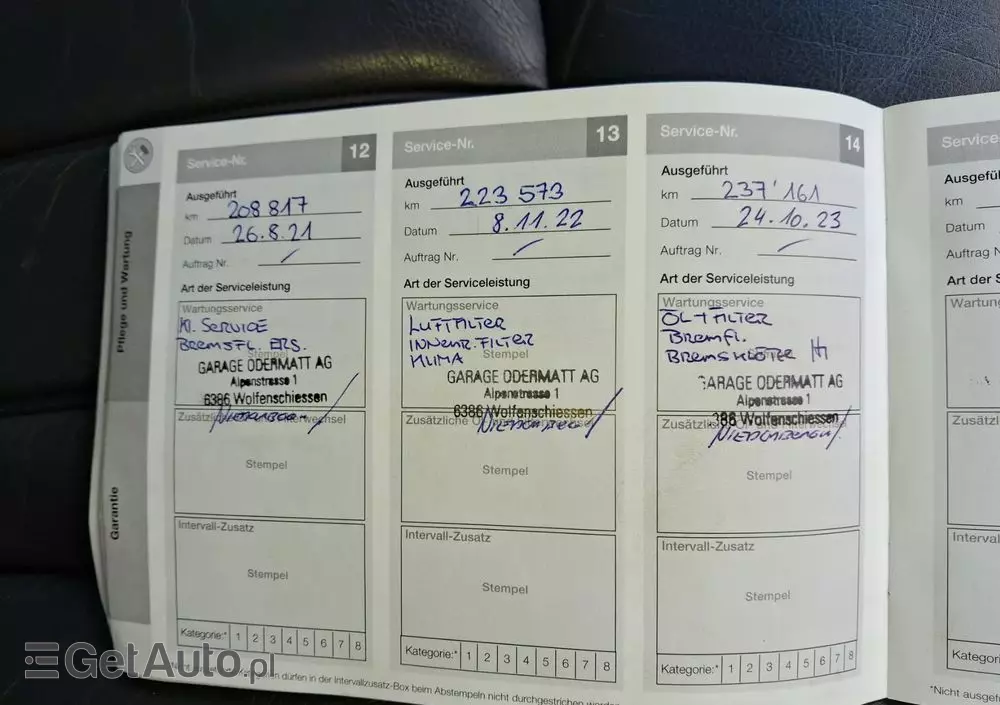 Pflege und Wartung
Garantie
Service-Nr. 12
Ausgeführt
km 208 817
Datum 26.8.21
Auftrag Nr. /
Art der Serviceleistung
Wartungsservice
Kl. SERVICE
BREMSFL. ERS.
Stempel
GARAGE ODERMATT AG
Alpenstrasse 1
6386 Wolfenschiessen
Stempel
Intervall-Zusatz
Stempel
Kategorie:* 1 2 3 4 5 6 7 8
Service-Nr. 13
Ausgeführt
km 223 573
Datum 8.11.22
Auftrag Nr. /
Art der Serviceleistung
Wartungsservice
LUFTFILTER
INNENR. FILTER
KLIMA
Stempel
GARAGE ODERMATT AG
Alpenstrasse 1
6386 Wolfenschiessen
Zusätzliche
Stempel
Intervall-Zusatz
Stempel
Kategorie:* 1 2 3 4 5 6 7 8
Service-Nr. 14
Ausgeführt
km 237'161
Datum 24.10.23
Auftrag Nr. /
Art der Serviceleistung
Wartungsservice
ÖL+FILTER
BREMFL.
BREMSKLÖTZE
GARAGE ODERMATT AG
Alpenstrasse 1
386 Wolfenschiessen
Stempel
Intervall-Zusatz
Stempel
Kategorie:* 1 2 3 4 5 6 7 8
Service
Ausgefü
km
Datum
Auftrag N
Art der S
Wartun
Zusätzl
Interval
Kategori
*Nicht ausgef
dürfen in der Intervallzusatz-Box beim Abstempeln nicht durchgestrichen
GetAuto.pl